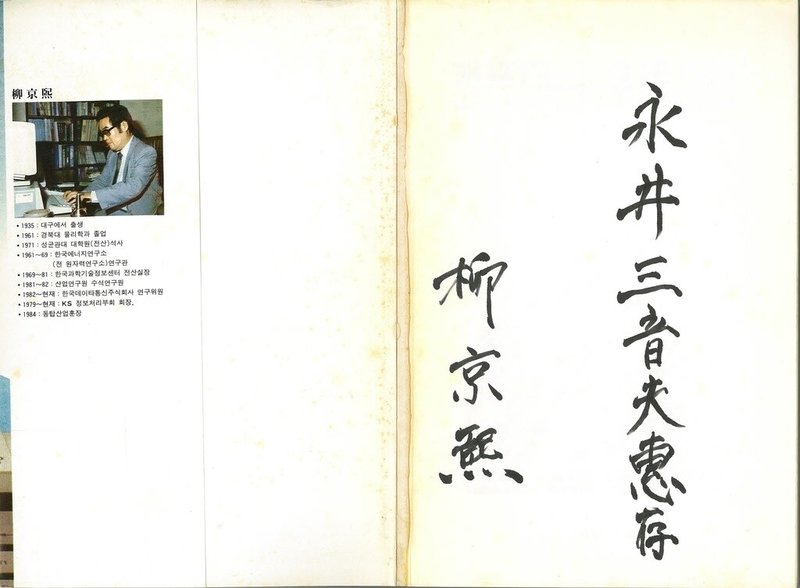 柳京熙
• 1935 : 대구에서 출생
• 1961 : 경북대 물리학과 졸업
• 1971 : 성균관대 대학원(전산)석사
• 1961~69 : 한국에너지연구소
(전 원자력연구소)연구관
• 1969~81 : 한국과학기술정보센터 전산실장
• 1981~82 : 산업연구원 수석연구원
• 1982~현재 : 한국데이타통신주식회사 연구위원
• 1979~현재 : KS 정보처리부회 회장.
• 1984 : 동탑산업훈장
永井三音夫惠存
柳京熙